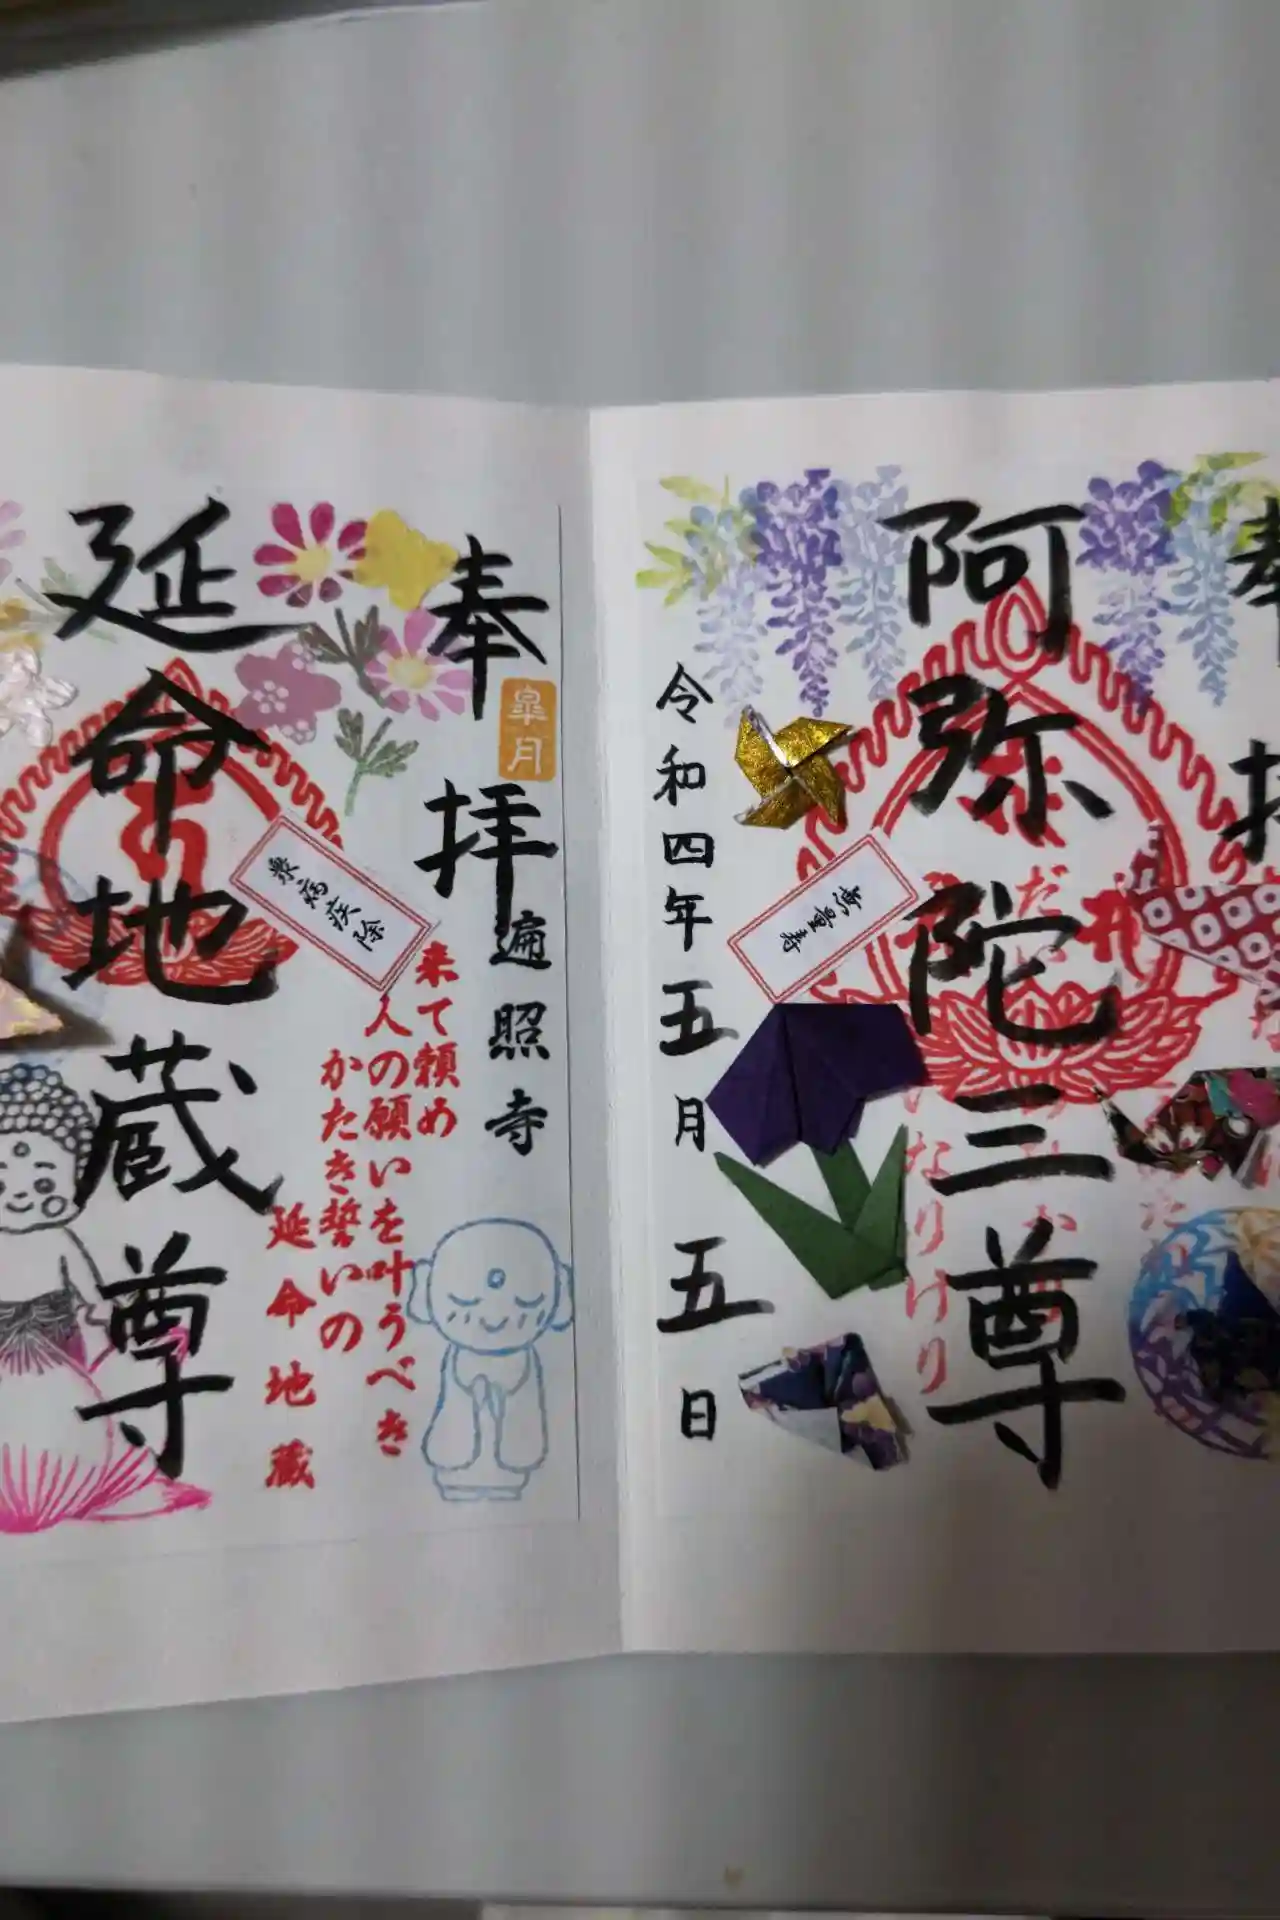 奉
拝
阿弥陀三尊
令和四年五月五日
なりけり
奉拝
皐月
遍照寺
来て頼め
人の願いを叶うべき
かたき誓いの
延命地蔵
衆病疾除
延命地蔵尊